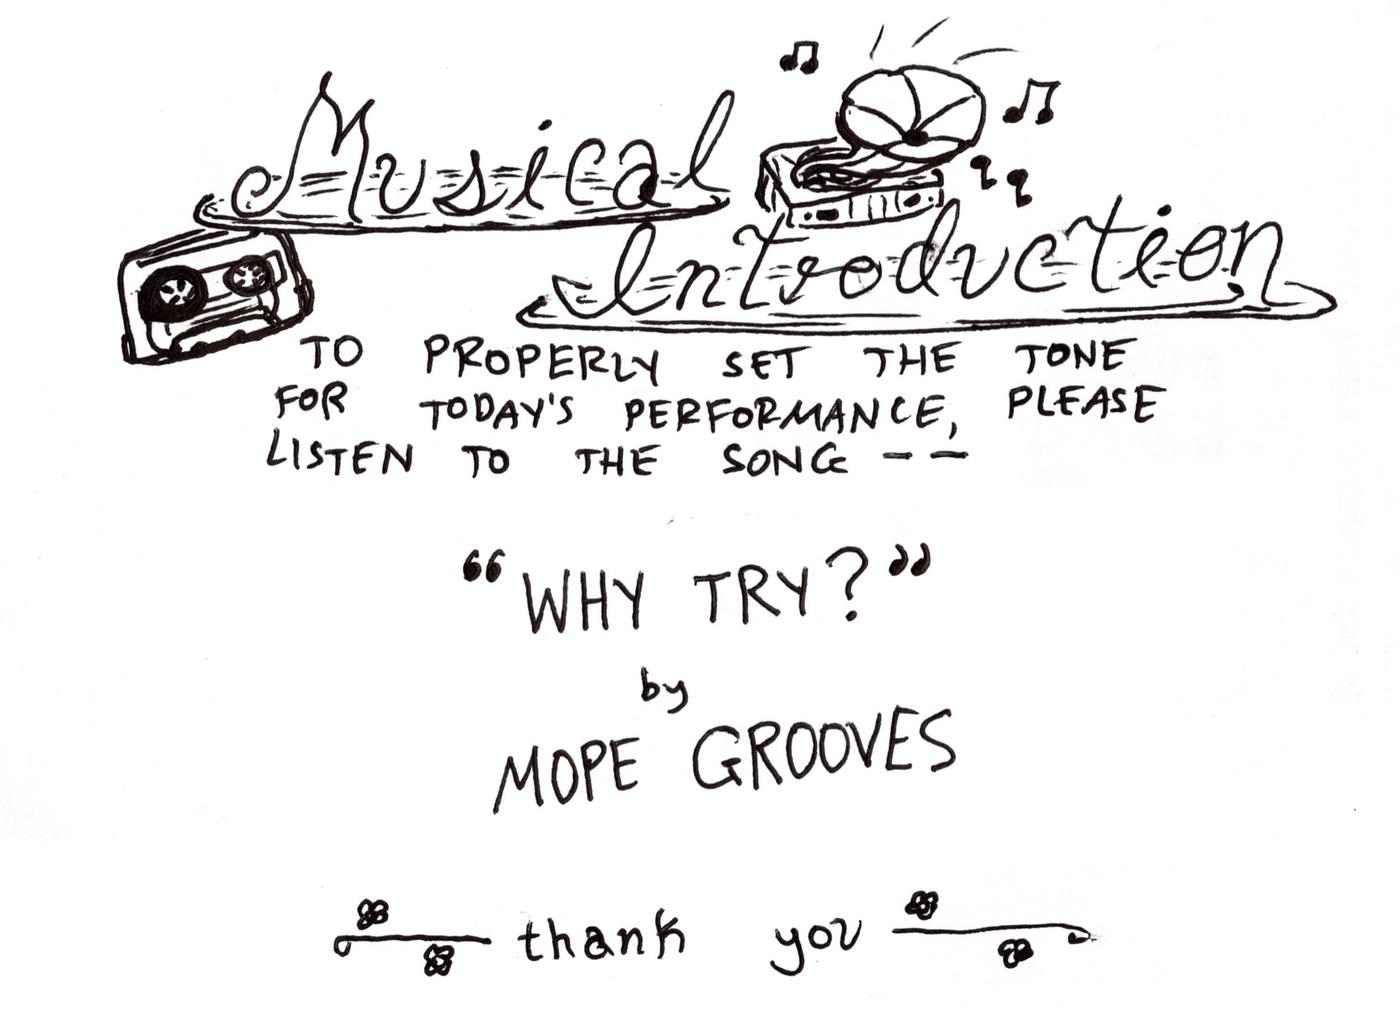 Musical
Introduction
TO PROPERLY SET THE TONE
FOR TODAY'S PERFORMANCE, PLEASE
LISTEN TO THE SONG --
"WHY TRY?"
by
MOPE GROOVES
thank you